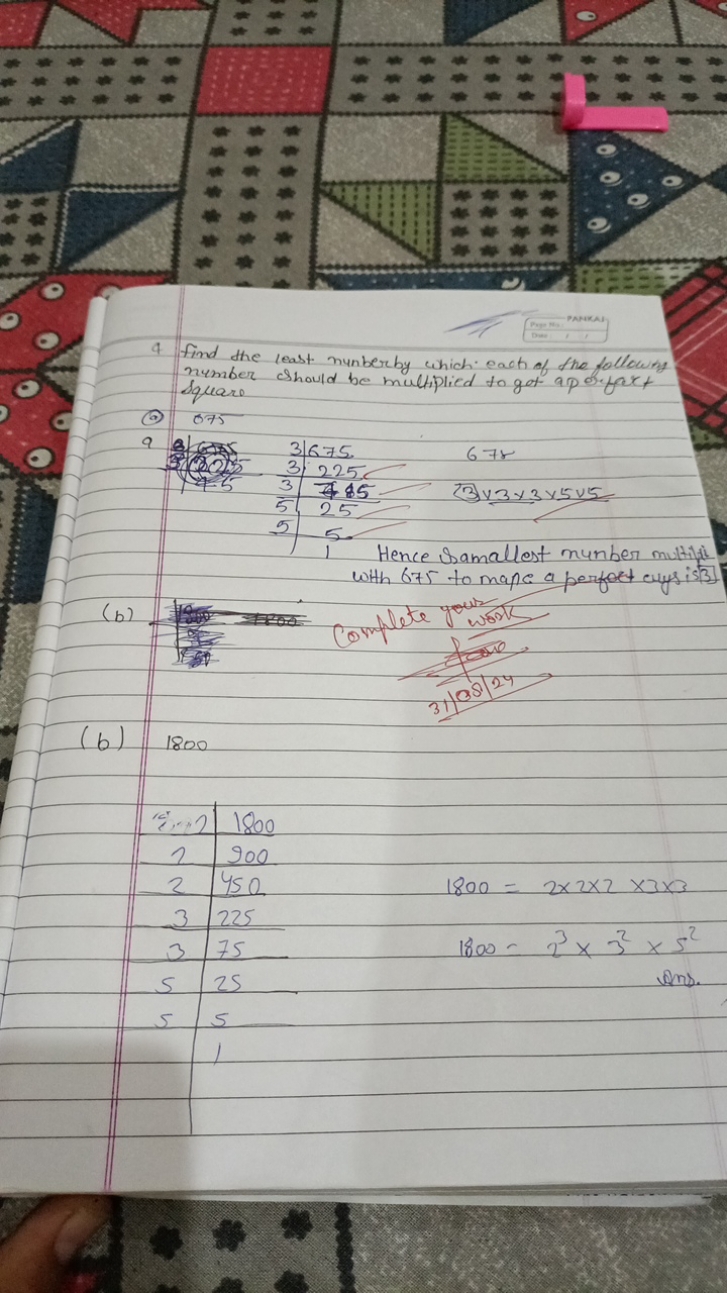 PANKAJ
Page No.:
Date: / /
9 find the least nunberby which each of the following
number should be multiplied to get a perfaxt
Square
(a) 675
9
3 | 675 678
3 | 225
3 | 85 3×3×3×5×5
5 | 25
5 | 5
1
Hence Samallest nunber multipli
with 675 to make a perfect is 3
(b) 1800
Complete your
work
31/08/24
(b) 1800
2 | 1800
2 | 900
2 | 450 1800 = 2×2×2 ×3×3
3 | 225
3 | 75 1800 = 2³ × 3² × 5²
5 | 25 Ans.
5 | 5
1